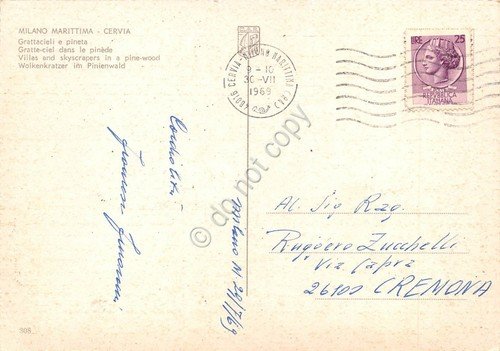 MILANO MARITTIMA - CERVIA
Grattacieli e pineta
Gratte-ciel dans le pinède
Villas and skyscrapers in a pine-wood
Wolkenkratzer im Pinienwald
48016 CERVIA-MILANO MARITTIMA (RA)
9-10
30-VII
1969
LIRE 25
REPUBBLICA
ITALIANA
Cordialità
Milano M. 29/7/69
Al Sig. Rag.
Ruggero Zucchelli
Via Capra
26100 CREMONA
308
do not copy